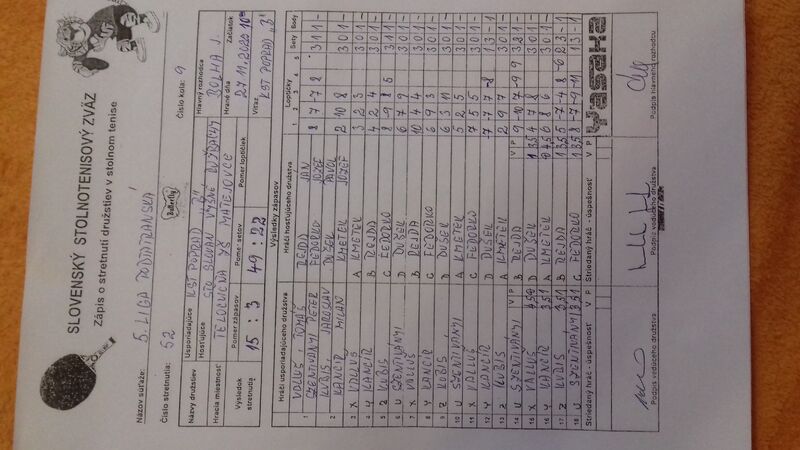 SLOVENSKÝ STOLNOTENISOVÝ ZVÄZ
Zápis o stretnutí družstiev v stolnom tenise
Butterfly
Názov súťaže: 5. LIGA PODTATRANSKÁ
Číslo stretnutia: 52 Číslo kola: 9
Názvy družstiev Usporiadajúce KST POPRAD "B" Hlavný rozhodca
Hosťujúce STO SLOVAN VYŠNÉ RUŽBACHY BOLHA J.
Hracia miestnosť TELOCVIČŇA ZŠ MATEJOVCE Hrané dňa 27.11.2020 Začiatok
Výsledok stretnutia Pomer zápasov 15 : 3 Pomer setov 49 : 22 Pomer loptičiek Víťaz KST POPRAD "B"
Výsledky zápasov
Hráči usporiadajúceho družstva Hráči hosťujúceho družstva Loptičky Sety Body
1 2 3 4 5
1 VALLUŠ TOMÁŠ REJDA JÁN
SZENTIVÁNYI PETER FEDORKO JOZEF 8 7 -7 8 3 1 1 -
2 KUBIS JAROSLAV DUŠEK PAVOL
KANCÍR MILAN KMETEK JOZEF 2 10 8 3 0 1 -
3 X VALLUŠ A KMETEK 3 2 3 3 0 1 -
4 Y KANCÍR B REJDA 4 2 4 3 0 1 -
5 Z KUBIS C FEDORKO 8 -9 8 5 3 1 1 -
6 U SZENTIVÁNYI D DUŠEK 6 7 9 3 0 1 -
7 X VALLUŠ B REJDA 10 4 4 3 0 1 -
8 Y KANCÍR C FEDORKO 6 9 3 3 0 1 -
9 Z KUBIS D DUŠEK 6 3 11 3 0 1 -
10 U SZENTIVÁNYI A KMETEK 5 2 5 3 0 1 -
11 X VALLUŠ C FEDORKO 7 5 5 3 0 1 -
12 Y KANCÍR D DUŠEK -7 -7 7 -8 1 3 - 1
13 Z KUBIS A KMETEK 2 9 7 3 0 1 -
14 U SZENTIVÁNYI B REJDA 9 10 -7 -9 9 3 2 1 -
15 X VALLUŠ D DUŠEK 4 7 8 3 0 1 -
16 Y KANCÍR A KMETEK 8 6 3 0 1 -
17 Z KUBIS B REJDA 5 -7 4 -8 -6 2 3 - 1
18 U SZENTIVÁNYI C FEDORKO 8 -7 -9 -11 1 3 - 1
Striedaný hráč - úspešnosť V P Striedaný hráč - úspešnosť V P
Yasaka
Podpis vedúceho družstva Podpis vedúceho družstva Podpis hlavného rozhodcu